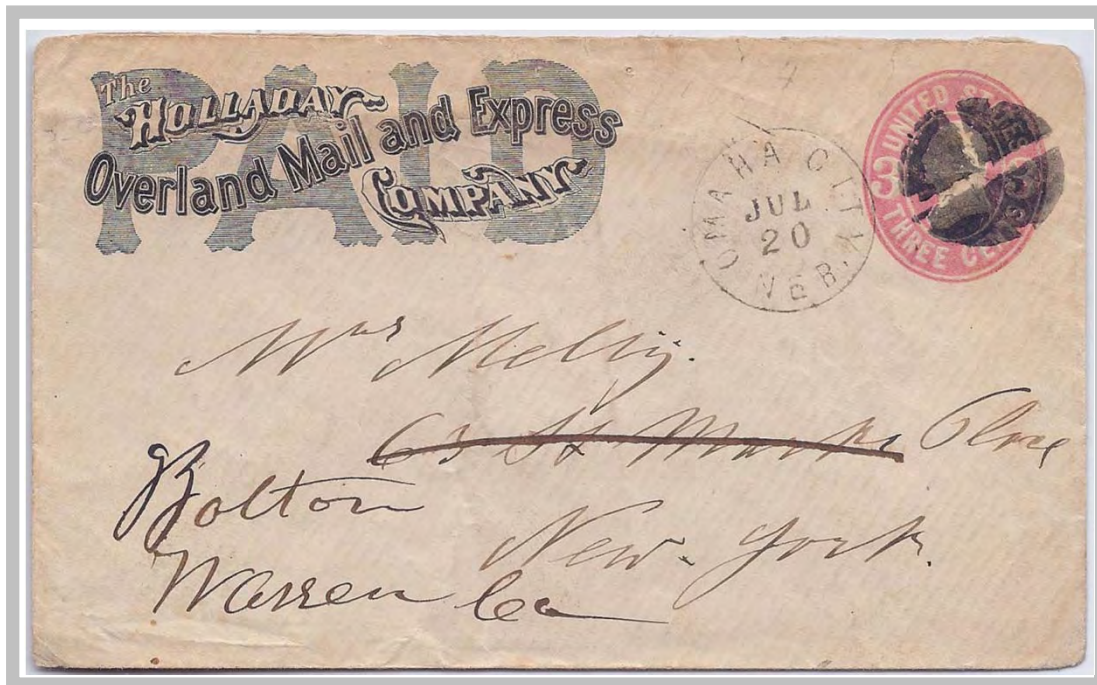 PAID
The
HOLLADAY
Overland Mail and Express
COMPANY
OMAHA CITY
JUL
20
NEB.
UNITED STATES
3 3
THREE CENTS
Mrs Melly.
63 St Marks Place
New-York.
Bolton
Warren Co